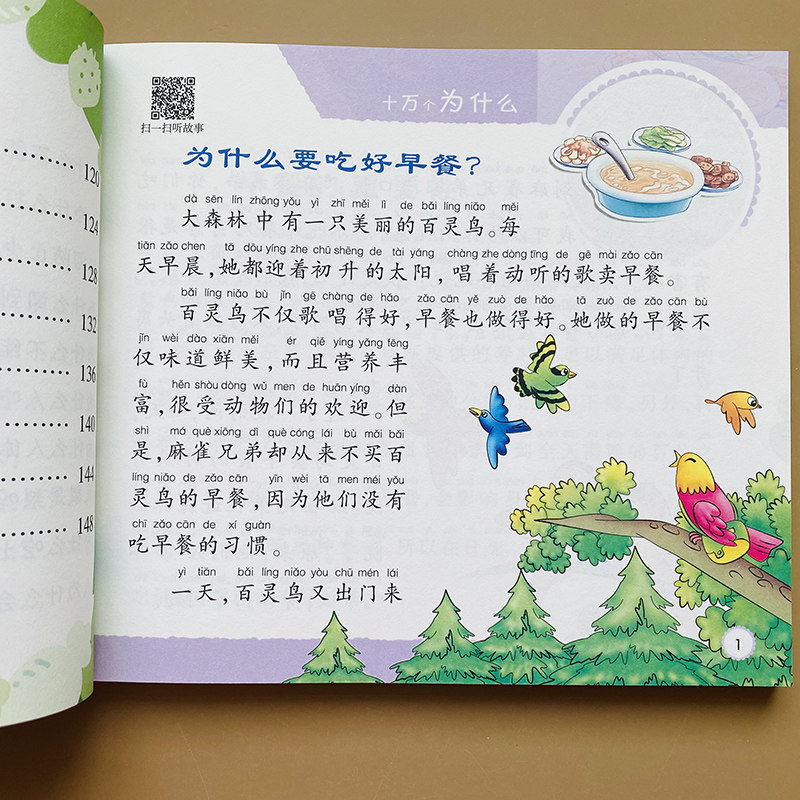 120
124
128
132
136
140
144
148
扫一扫听故事
十万个为什么
为什么要吃好早餐?
dà sēn lín zhōng yǒu yì zhī měi lì de bǎi líng niǎo měi
大森林中有一只美丽的百灵鸟。每
tiān zǎo chen tā dōu yíng zhe chū shēng de tài yáng chàng zhe dòng tīng de gē mài zǎo cān
天早晨,她都迎着初升的太阳,唱着动听的歌卖早餐。
bǎi líng niǎo bù jǐn gē chàng de hǎo zǎo cān yě zuò de hǎo tā zuò de zǎo cān bù
百灵鸟不仅歌唱得好,早餐也做得好。她做的早餐不
jǐn wèi dào xiān měi ér qiě yíng yǎng fēng
仅味道鲜美,而且营养丰
fù hěn shòu dòng wù men de huān yíng dàn
富,很受动物们的欢迎。但
shì má què xiōng dì què cóng lái bù mǎi bǎi
是,麻雀兄弟却从来不买百
líng niǎo de zǎo cān yīn wèi tā men méi yǒu
灵鸟的早餐,因为他们没有
chī zǎo cān de xí guàn
吃早餐的习惯。
yì tiān bǎi líng niǎo yòu chū mén lái
一天,百灵鸟又出门来
1